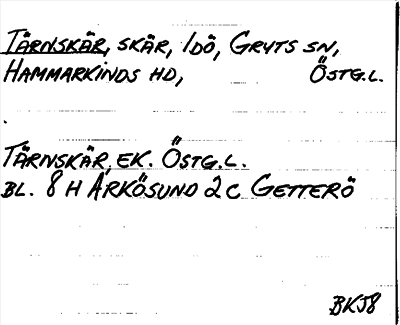 TÄRNSKÄR, SKÄR, IDÖ, GRYTS SN,
HAMMARKINDS HD, ÖSTG.L.
TÄRNSKÄR EK. ÖSTG.L.
BL. 8 H ARKÖSUND 2 C GETTERÖ
BKJ8